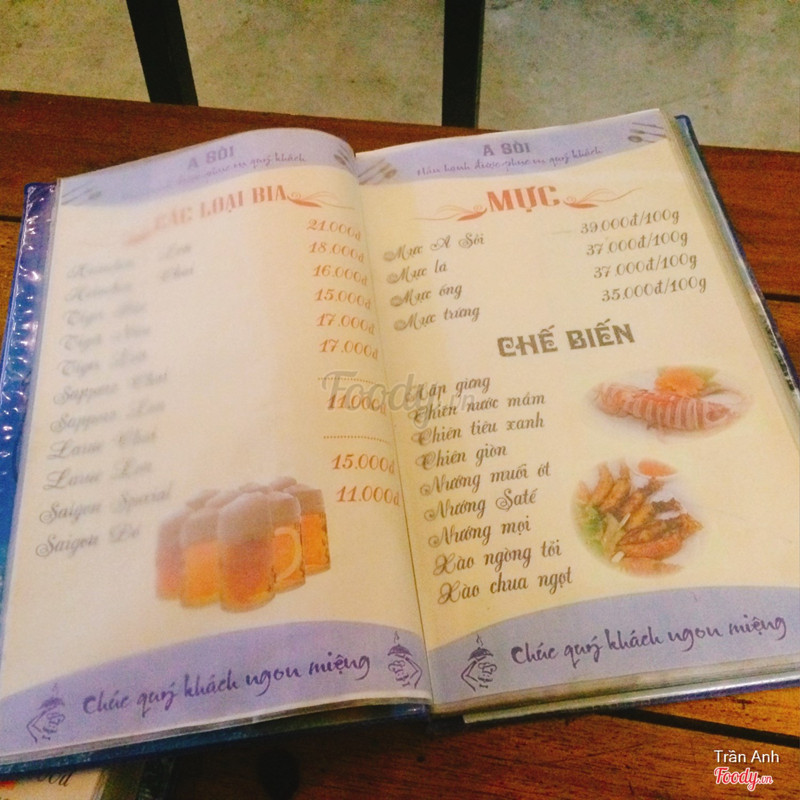 A SÒI
quý khách
CÁC LOẠI BIA
Heineken Lon 21.000đ
Heineken Chai 18.000đ
Tiger Bạc 16.000đ
Tiger Nâu 15.000đ
Tiger Lon 17.000đ
Sapporo Chai 17.000đ
Sapporo Lon
Larue Chai 11.000đ
Larue Lon
Saigon Special 15.000đ
Saigon Đỏ 11.000đ
Chúc quý khách ngon miệng
A SÒI
Hân hạnh được phục vụ quý khách
MỰC
Mực A Sòi 39.000đ/100g
Mực lá 37.000đ/100g
Mực ống 37.000đ/100g
Mực trứng 35.000đ/100g
CHẾ BIẾN
Hấp gừng
Chiên nước mắm
Chiên tiêu xanh
Chiên giòn
Nướng muối ớt
Nướng Saté
Nướng mọi
Xào ngòng tỏi
Xào chua ngọt
Chúc quý khách ngon miệng
Foody.vn
Trần Anh
Foody.vn